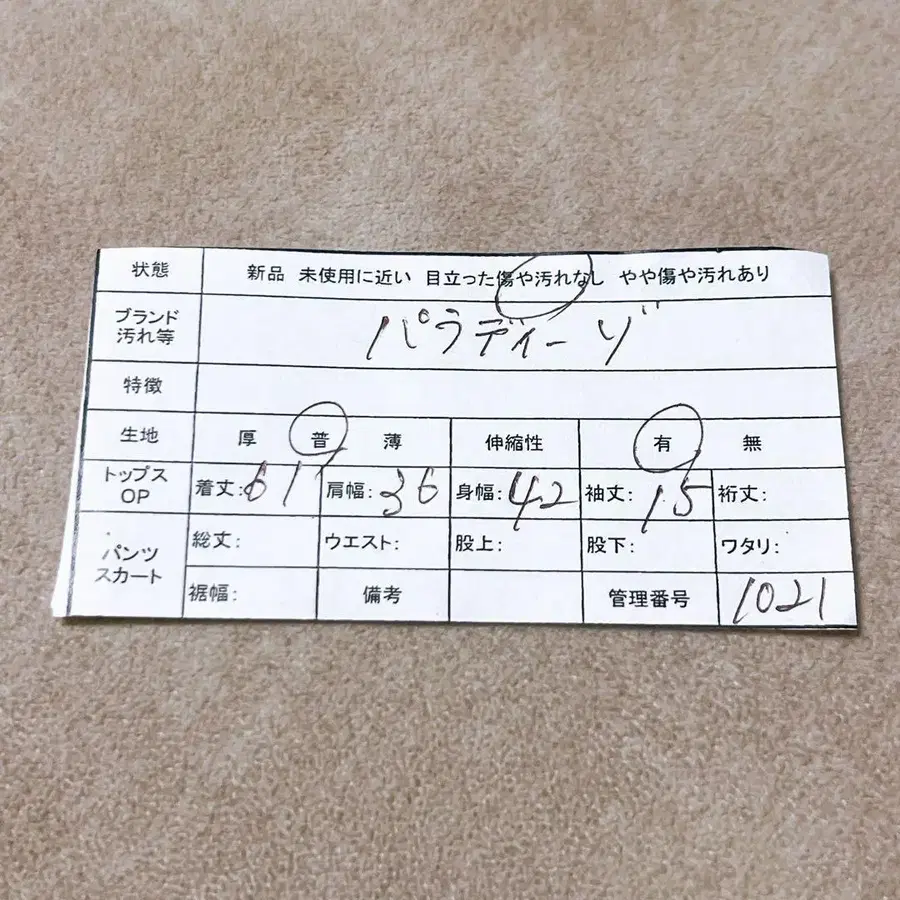 状態 新品 未使用に近い 目立った傷や汚れなし やや傷や汚れあり
ブランド
汚れ等 パラディーゾ
特徴
生地 厚 普 薄 伸縮性 有 無
トップス
OP 着丈:61 肩幅:36 身幅:42 袖丈:15 裄丈:
パンツ
スカート 総丈: ウエスト: 股上: 股下: ワタリ:
裾幅: 備考 管理番号 1021